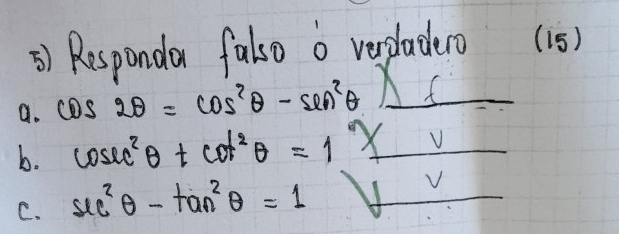 5) Responda falso ó verdadero (15)
a. cos 2θ = cos²θ - sen²θ f
b. cosec²θ + cot²θ = 1 v
c. sec²θ - tan²θ = 1 v